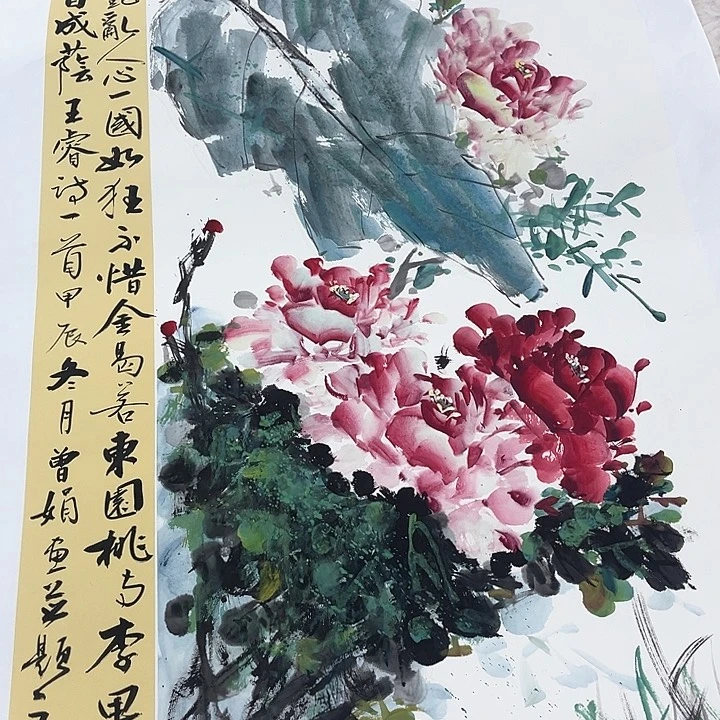 亂人心一國如狂不惜金曷若東園桃与李果
自成蔭王睿詩一首甲辰冬月曾娟画並題